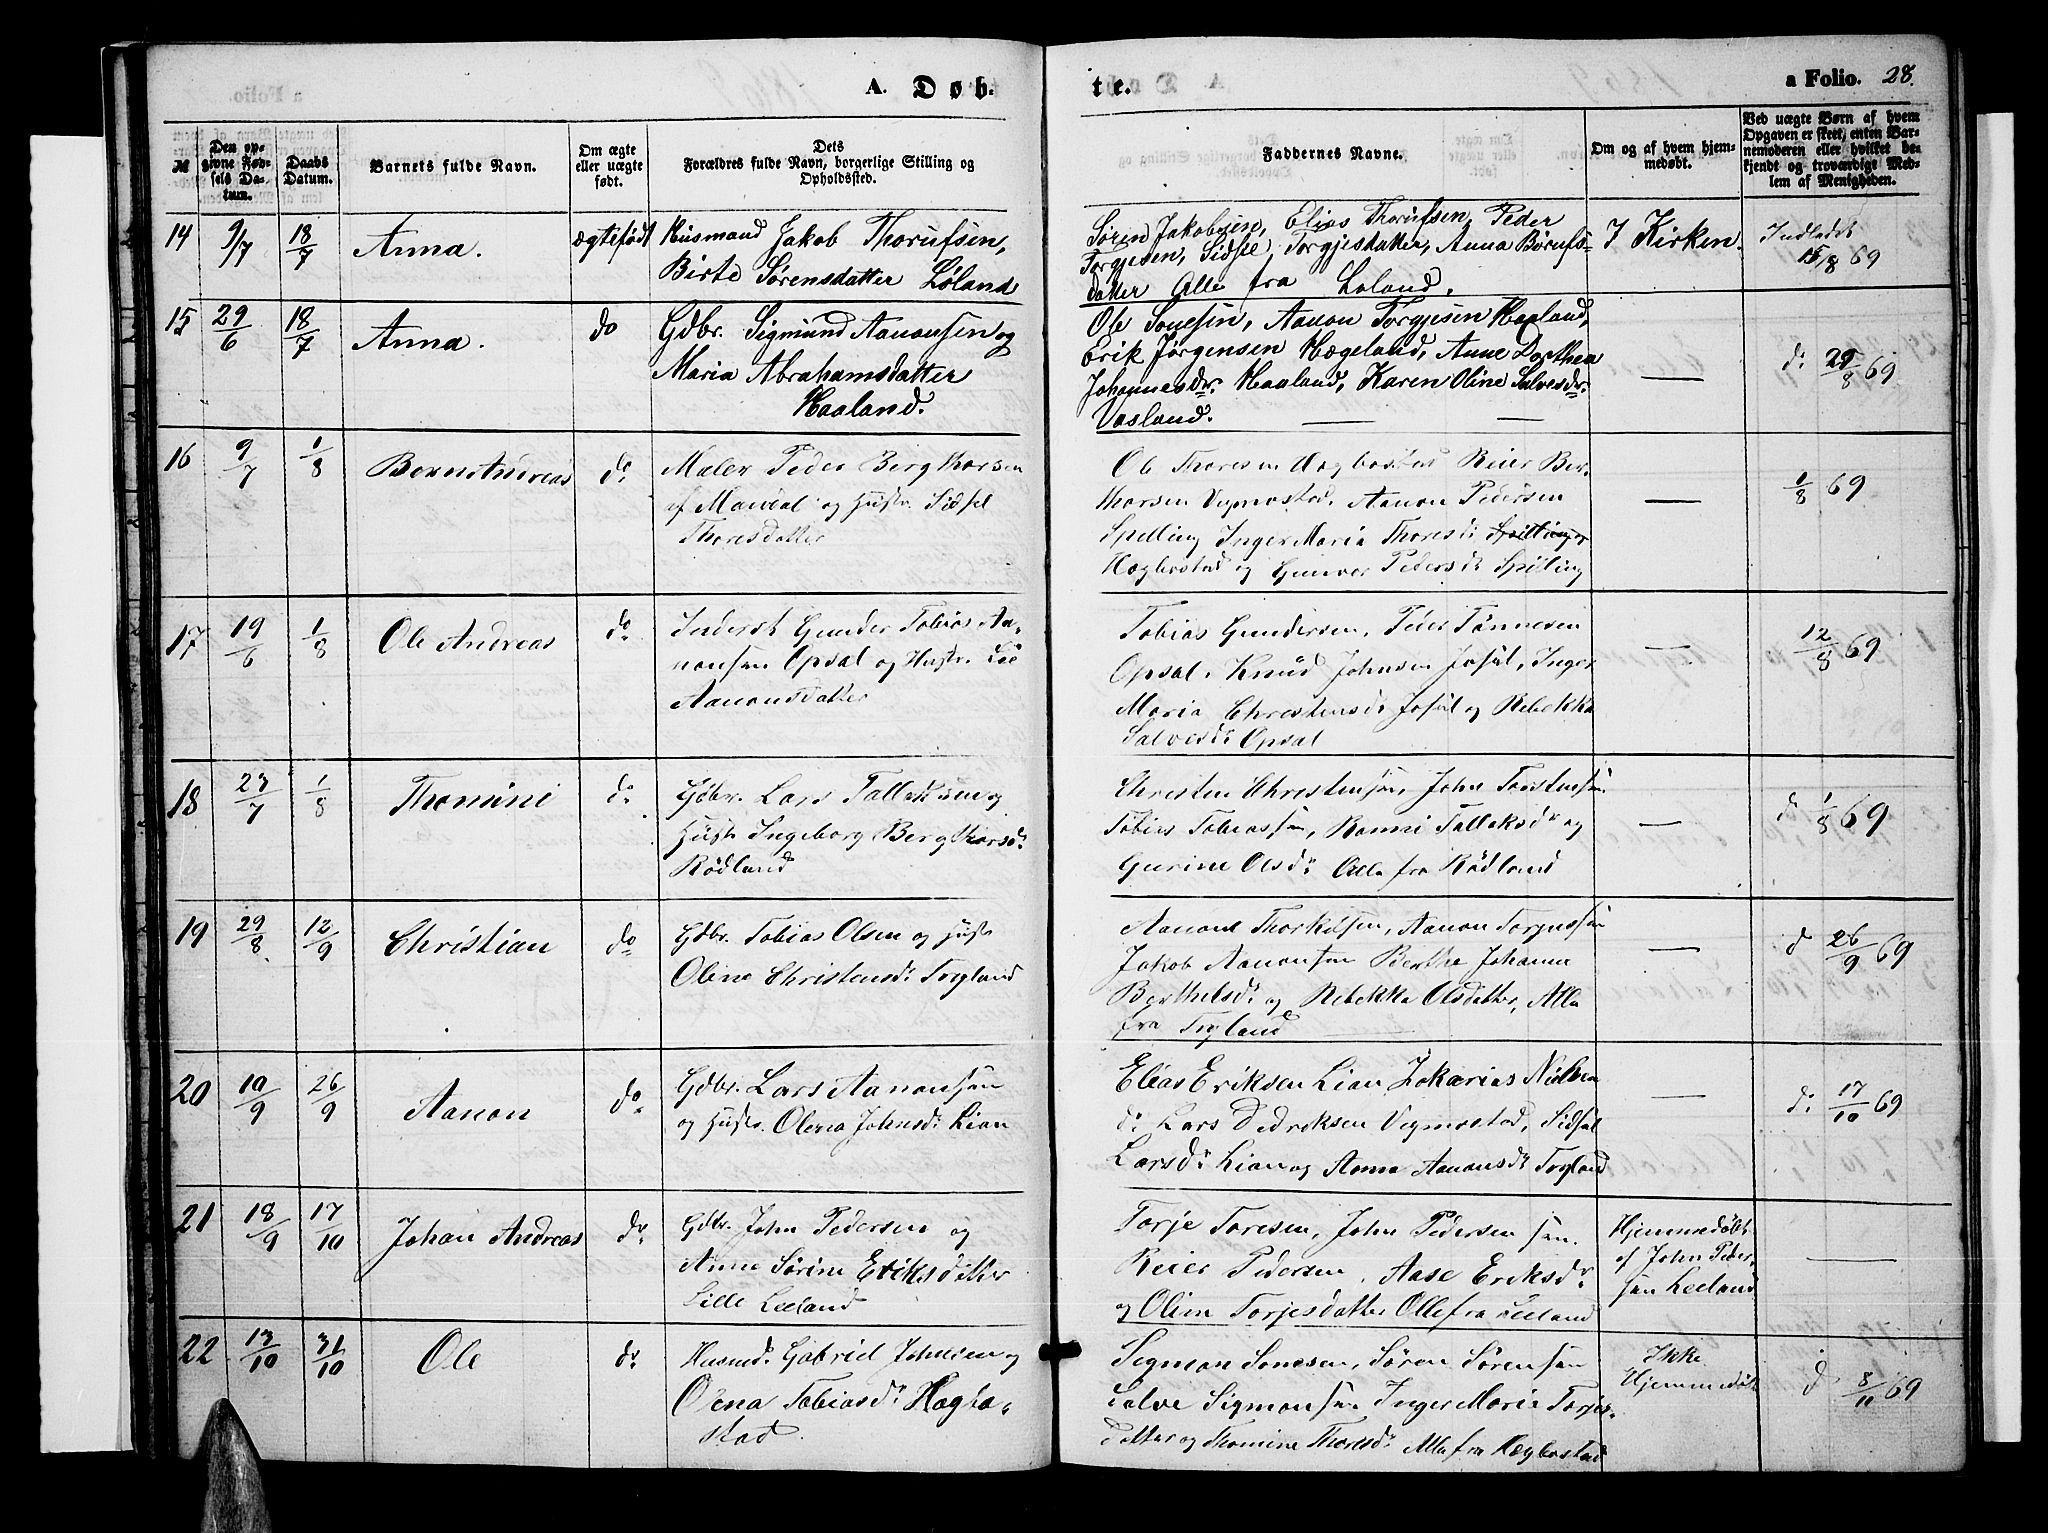 A. Døb-
te.
a Folio. 28.
№
Den op-
givne Fød-
sels Da-
tum.
Daabs
Datum.
Barnets fulde Navn.
Om ægte
eller uægte
født.
Dets
Forældres fulde Navn, borgerlige Stilling og
Opholdssted.
Faddernes Navne.
Om og af hvem hjem-
medøbt.
Ved uægte Børn af hvem
Opgaven er skeet, enten Bar-
nemoderen eller hvilket be-
kjendt og troværdigt Med-
lem af Menigheden.
14 9/7 18/7 Anna. ægtefødt
Husmand Jakob Thorufsen,
Birte Sørensdatter Løland
Søren Jakobsen, Elias Thorufsen, Peder
Torgjesen, Sidsel Torgjesdatter, Anna Børufs-
datter Alle fra Loland.
I Kirken.
Indledet
15/8 69
15 29/6 18/7 Anna. do
Gdbr. Sigmund Aanonsen og
Maria Abrahamsdatter
Haaland.
Ole Sonesen, Aanon Torgjesen Haaland,
Erik Jørgensen Hægeland, Anne Dorthea
Johannesdr. Haaland, Karen Oline Salvesdr.
Vasland.
—
do 29/8 69
16 9/7 1/8 Berent Andreas do
Maler Peder Bergthorsen
af Mandal og Hustr. Sidsel
Thoresdatter
Ole Thoresen Hogbostad Reier Ber-
thorsen Vigmostad, Aanon Pedersen
Spelling Inger Maria Thoresdr
Høgbostad og Gunvor Pedersdr Spilling
—
1/8 69
17 19/6 1/8 Ole Andreas do
Inderst Gunder Tobias Aa-
nonsen Opsal og Hustr.
Aanonsdatter
Tobias Gundersen, Peder Tønnesen
Opsal, Knud Johnsen Josul, Inger
Maria Christensdr Josul og Rebekka
Salvesdr Opsal
—
12/8 69
18 23/7 1/8 Thomine do
Gdbr. Lars Tallaksen og
Hustr Ingeborg Bergthorsdr
Rödland
Christen Christensen, John Torstensen
Tobias Tobiassen, Ronni Tallaksdr og
Gurine Olsdr Alle fra Rödland
—
do 1/8 69
19 29/8 12/9 Christian do
Gdbr. Tobias Olsen og Hustr
Oline Christensdr Trygland
Aanond Thorkilsen, Aanon Torjussen
Jakob Aanonsen Berthe Johanne
Berthelsdr og Rebekka Olsdatter, Alle
fra Trygland
—
do 26/9 69
20 10/9 26/9 Aanon do
Gdbr. Lars Aanonsen
og Hustr. Olena Johnsdr Lian
Elias Eriksen Lian Zakarias Nielsen
do Lars Didriksen Vigmostad, Sidsel
Larsdr Lian og Anna Aanonsdr Trygland
—
do 17/10 69
21 18/9 17/10 Johan Andreas do
Gdbr. John Pedersen og
Anne Sørine Eriksdatter
Lille Leeland
Torje Toresen, John Pedersen sen.
Reier Pedersen, Aase Eriksdr
og Oline Torjesdatter Alle fra Leeland
Hjemmedøbt
af John Peder-
sen Leeland
—
22 13/10 31/10 Ole do
Husmd. Gabriel Johnsen og
Olena Tobiasdr Hogbo-
stad
Sigmon Sonesen, Søren Sørensen
Salve Sigmonsen Inger Marie Torjes-
datter og Thomine Thoresdr Alle fra Høgbostad
Ikke
Hjemmedøbt
do 8/11 69